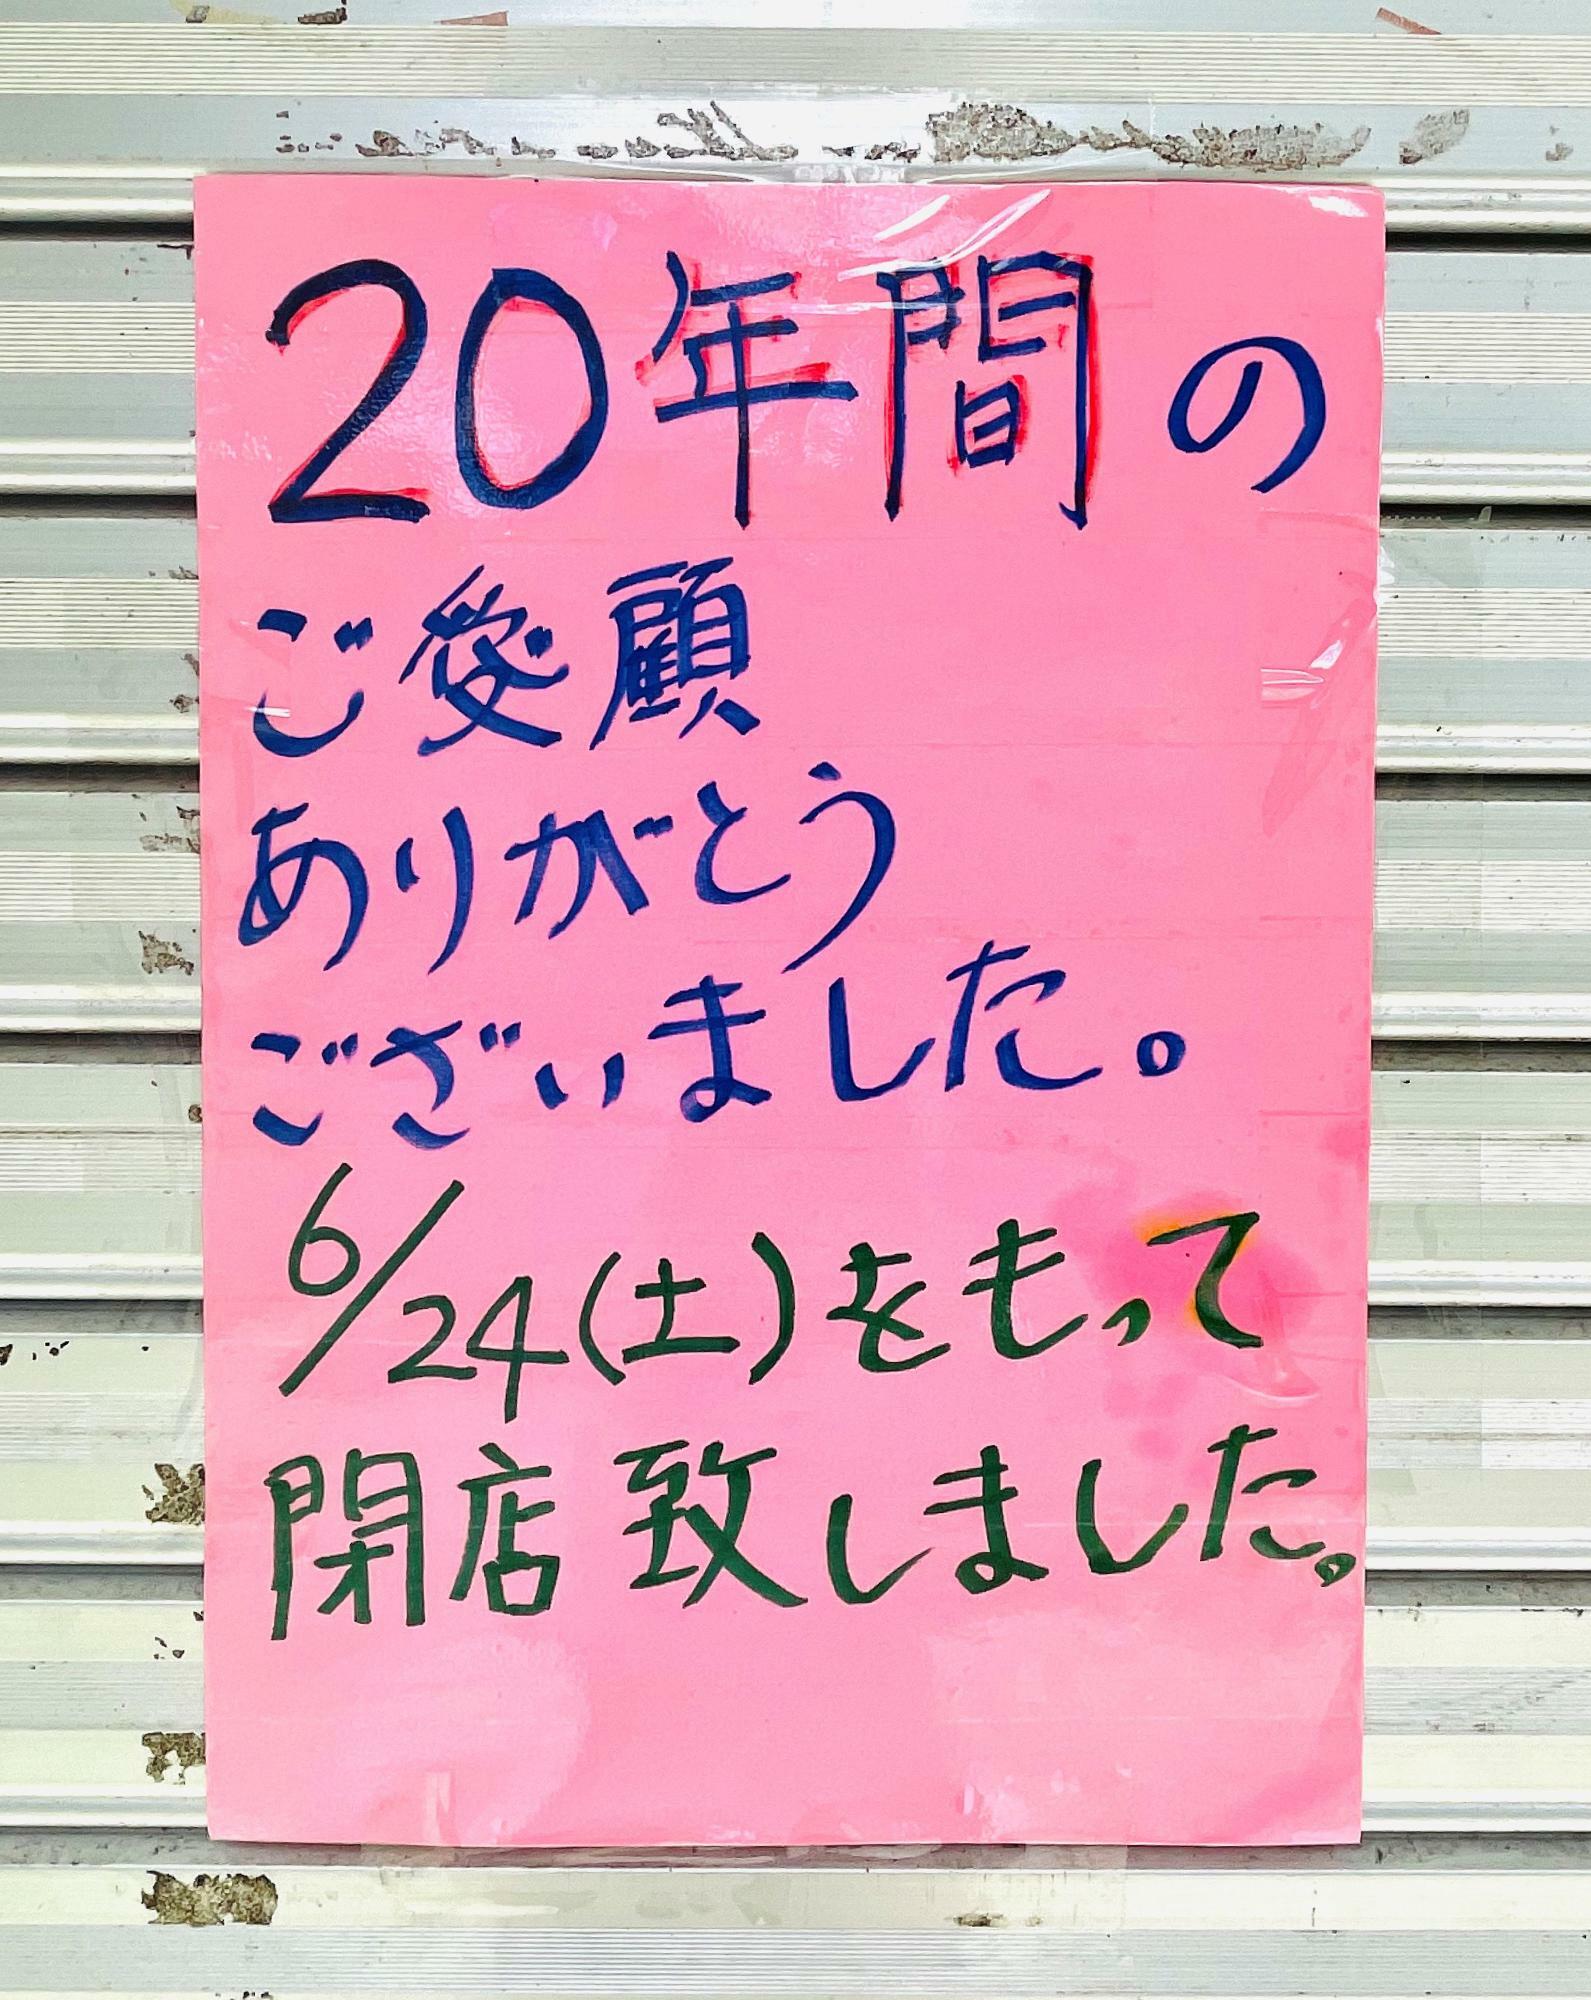 20年間の
ご愛顧
ありがとう
ございました。
6/24(土)をもって
閉店致しました。